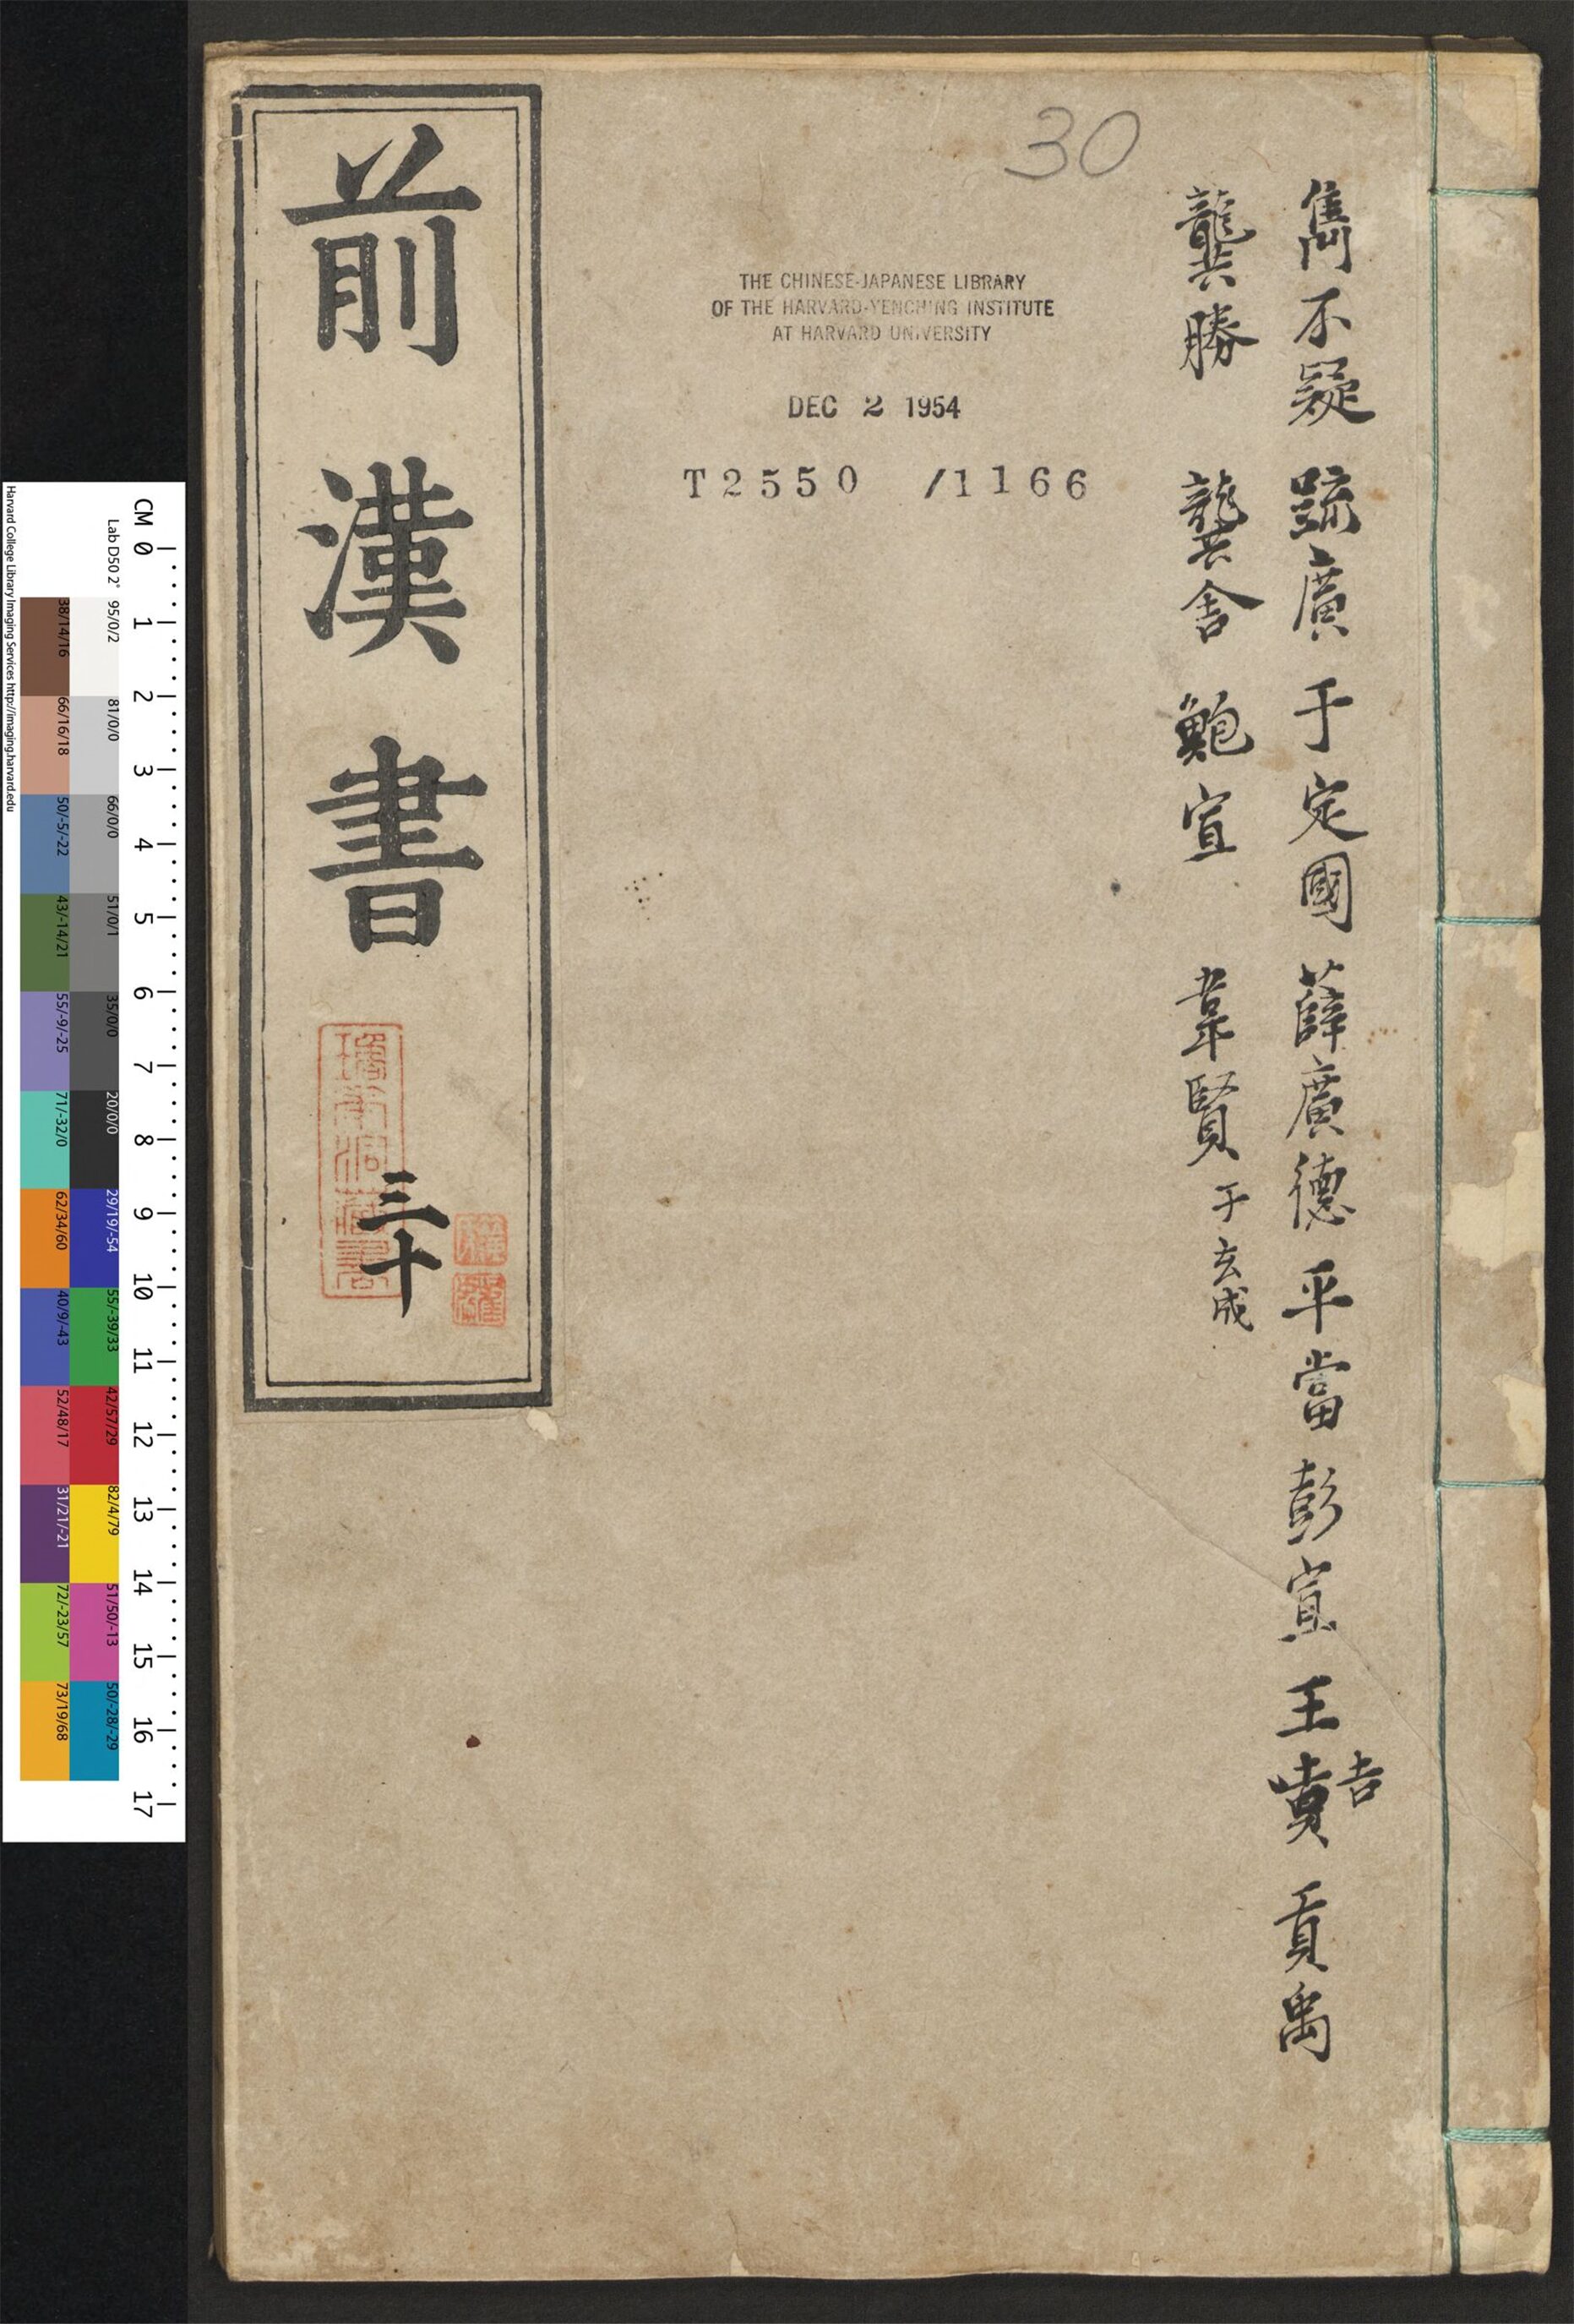 雋不疑 疏廣 于定國 薛廣德 平當 彭宣 王吉 貢禹
龔勝 龔舍 鮑宣 韋賢 子玄成
30
THE CHINESE-JAPANESE LIBRARY
OF THE HARVARD-YENCHING INSTITUTE
AT HARVARD UNIVERSITY
DEC 2 1954
T2550 /1166
前漢書
三十
CM 0 1 2 3 4 5 6 7 8 9 10 11 12 13 14 15 16 17
Lab D50 2° 95/0/2 81/0/0 66/0/0 51/0/1 35/0/0 20/0/0 29/19/-54 55/-39/33 42/57/29 82/4/79 51/50/-13 50/-28/-29
38/14/16 66/16/18 50/-5/-22 43/-14/21 55/-9/-25 71/-32/0 62/34/60 40/9/-43 52/48/17 31/21/-21 72/-23/57 73/19/68
Harvard College Library Imaging Services http://imaging.harvard.edu